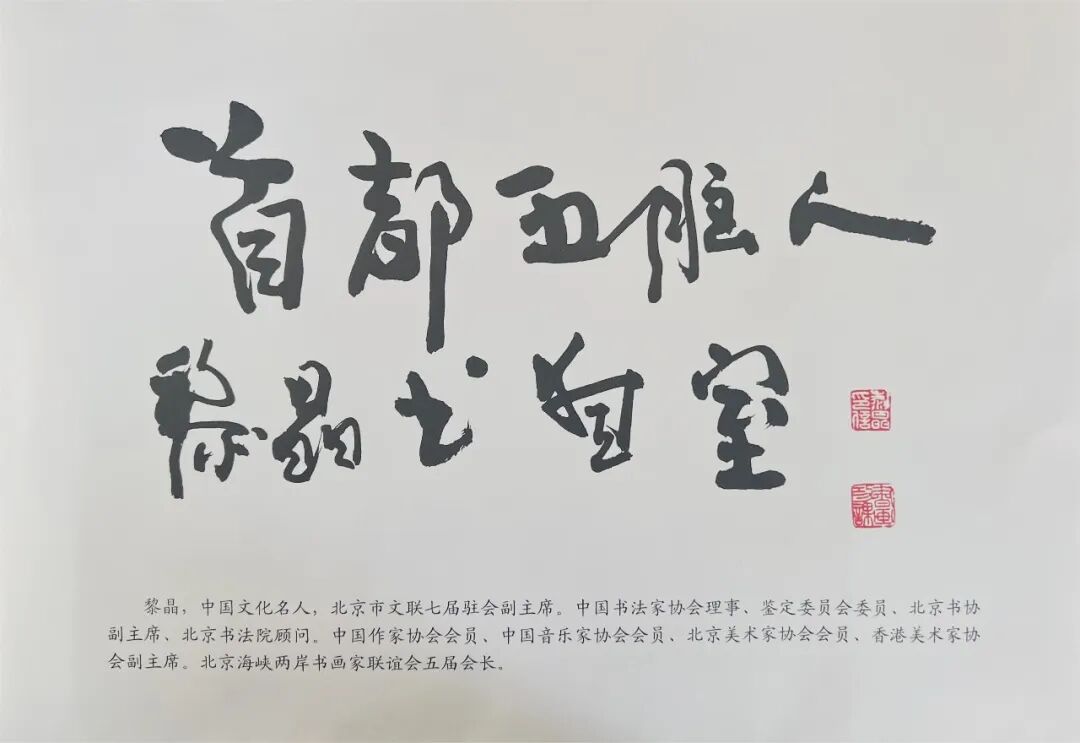 首都五脏人
黎晶书于自室
黎晶，中国文化名人，北京市文联七届驻会副主席。中国书法家协会理事、鉴定委员会委员、北京书协
副主席、北京书法院顾问。中国作家协会会员、中国音乐家协会会员、北京美术家协会会员、香港美术家协
会副主席。北京海峡两岸书画家联谊会五届会长。